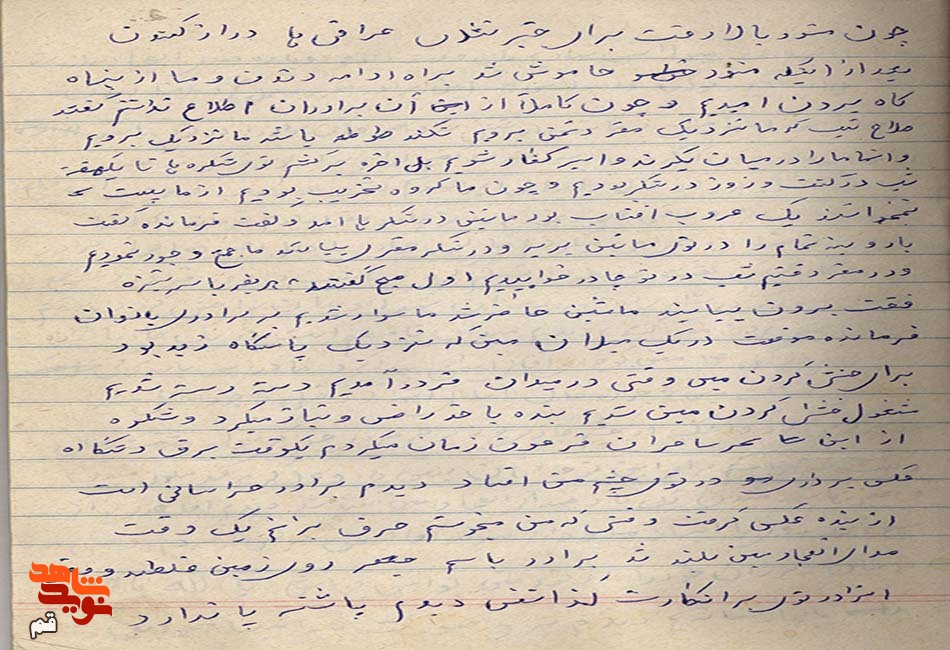 چون منور بالا رفت برای خبر شدن عراقی ها در آن کمتون
بعد از اینکه منور خاموش شد براه ادامه دادن و ما از پناه
گاه بیرون آمدیم و چون کاملا از این آن برادران اطلاع نداشتم گفتند
صلاح نیست که ما نزدیک مقر دشمن برویم نکند طوطه باشد ما نزدیک برویم
و انها ما را در میان بگیرند و اسیر کفار شویم بل اخره برگشتیم توی سنگرها تا یکهفته
شب در گشت و روز در سنگر بودیم و چون ما گروه تخریب بودیم از ما بیست
نزدیک غروب افتاب بود ماشین در سنگر ما امد و گفت فرمانده گفت
بار و بنه تمام را در توی ماشین بریزید و در سنگر مقر بیایید ما جمع و جور نمودیم
و در مقر رفتیم شب در تو چادر خوابیدیم اول صبح گفتند هر نفر با سر نیزه
فقت بیرون بیایند ماشین حاضر شد ما سوار شدیم بر برادری بعنوان
فرمانده موقت در یک میدان مین که نزدیک پاسگاه زید بود
برای خنثی کردن مین وقتی در میدان فرود آمدیم دسته دسته شدیم
مشغول خنثی کردن مین شدیم بنده با خدا راضی و نیاز میکرد و شکوه
از این سحر ساحران فرعون زمان میکردم یکوقت برق دستگاه
عکس برداری در توی چشم من افتاد دیدم برادر خراسانی است
از بنده عکس گرفت وقتی که من میخوستم حرف بزنم یک وقت
صدای انفجار مین بلند شد برادر یاسم جعفر روی زمین غلطید و
در توی برانکارت گذاشتن دیدم پاشنه پا ندارد
نوید شاهد
قم